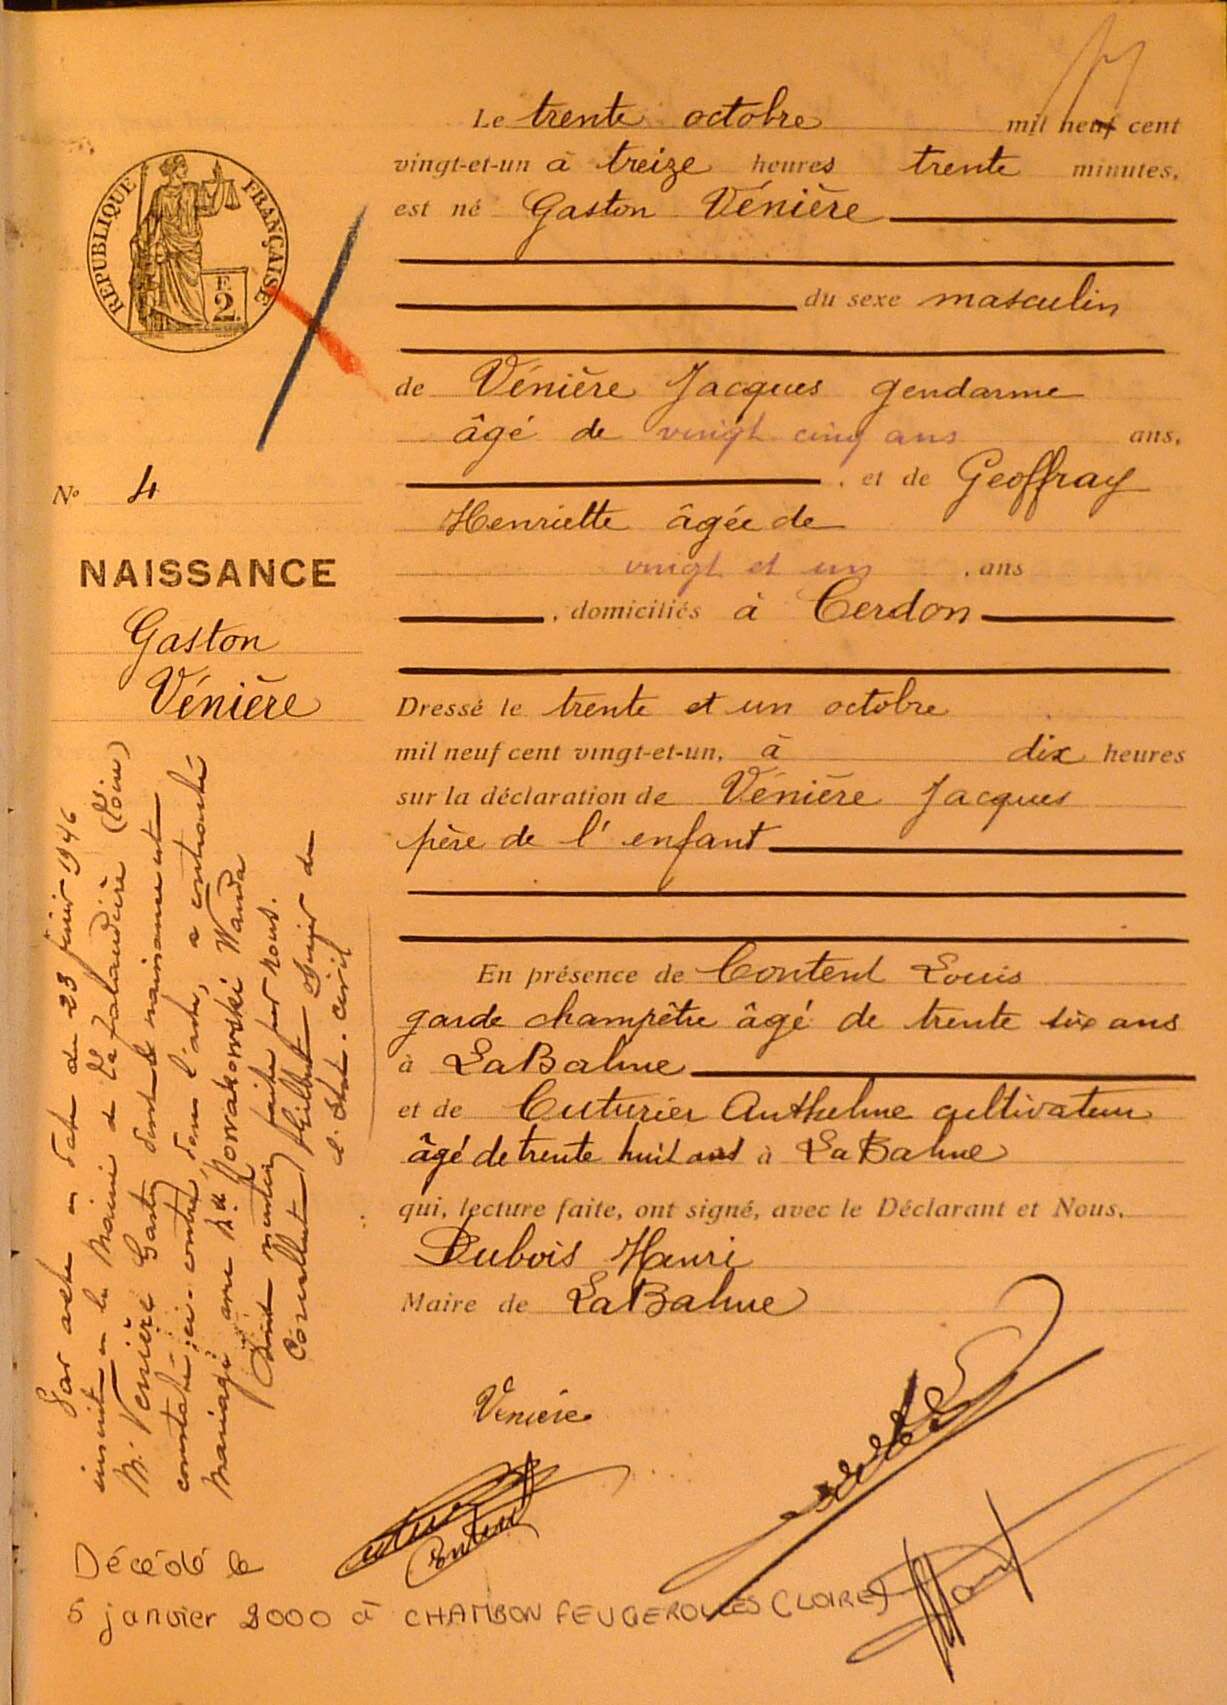 Le trente octobre mil neuf cent
vingt-et-un à treize heures trente minutes,
est né Gaston Vénière
du sexe masculin
de Vénière Jacques gendarme
âgé de vingt cinq ans ans,
, et de Geoffray
Henriette âgée de
vingt et un , ans
, domiciliés à Cerdon
Dressé le trente et un octobre
mil neuf cent vingt-et-un, à dix heures
sur la déclaration de Vénière Jacques
père de l'enfant
En présence de Content Louis
garde champêtre âgé de trente six ans
à La Balme
et de Cuturier Anthelme cultivateur
âgé de trente huit ans à La Balme
qui, lecture faite, ont signé, avec le Déclarant et Nous,
Dubois Henri
Maire de La Balme
REPUBLIQUE FRANÇAISE
F.
2.
No 4
NAISSANCE
Gaston
Vénière
Par acte en date du 23 février 1946
inscrit en la Mairie de La Talaudière (Loire)
M. Vénière Gaston dont la naissance est
constatée ci-contre, dans l'acte, a contracté
mariage avec Melle Nowakowski Wanda
Dont mention faite par nous.
Officier de
l'état-civil
Vénière
Content
Décédé le
5 janvier 2000 à CHAMBON FEUGEROLLES (LOIRE)